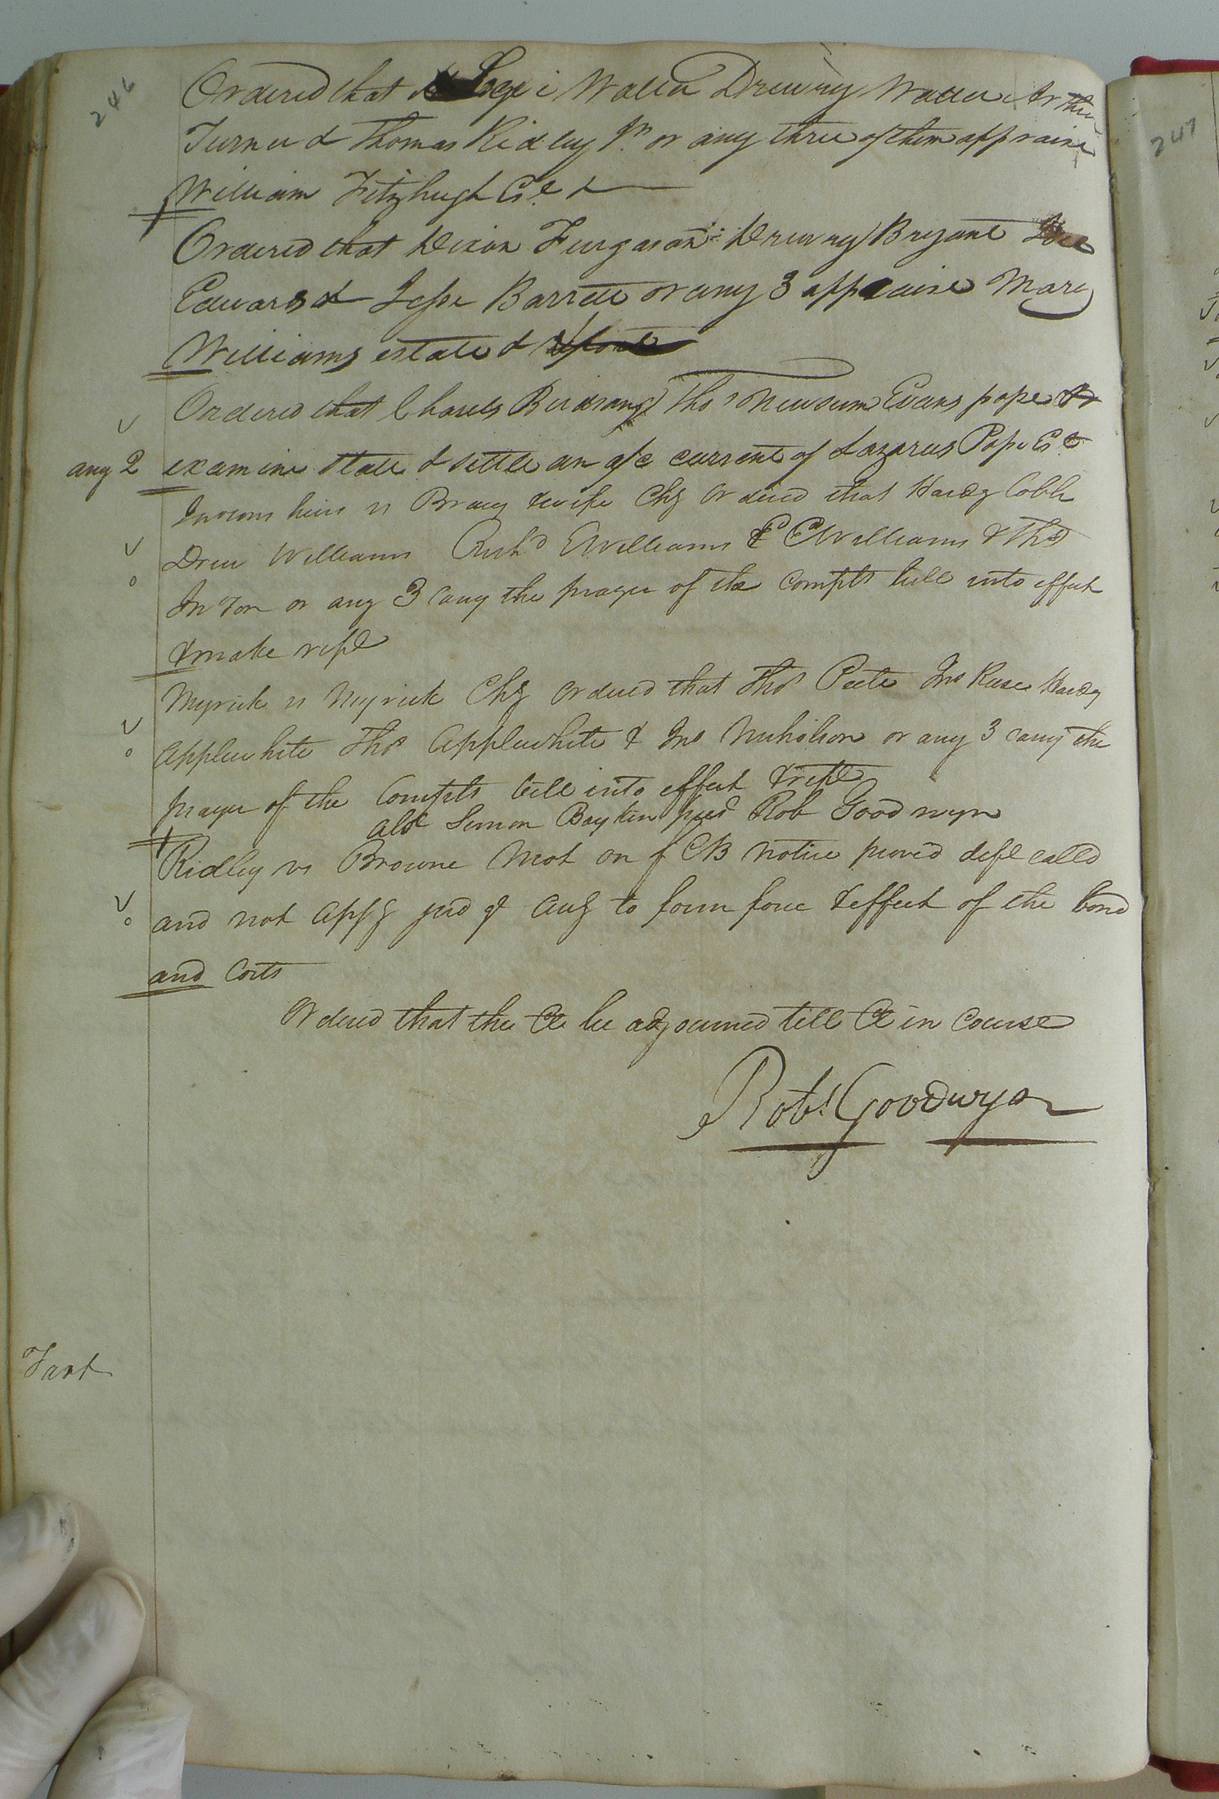 246
Ordered that Walter Drewry Walter Arthur
Turner & Thomas Ridley Jr. or any three of them appraise
William Fitzhugh Est &
Ordered that Dixon Furgason Drewry Bryant
Edwards & Jesse Barrett or any 3 appraise Mary
Williams estate &
Ordered that Charles Birdsong Thos Newsum Evans pope &
any 2 examine state & settle an a/c current of Lazarus Pope Est
heirs vs Bracy & wife Chy Ordered that Hardy Cobb
Drew Williams Richd E Williams C Williams & Thos
or any 3 carry the prayer of the Complts bill into effect
& make rept
Myrick vs Myrick Chy Ordered that Thos Pete Jno Rose Hardy
Applewhite Thos Applewhite & Jno Nicholson or any 3 carry the
prayer of the Complts bill into effect & rept
abst Simon Boykin prest Rob Goodwyn
Ridley vs Browne Mot on f CB notice proved deft called
and not appg jud of Awg to form force & effect of the bond
and Costs
Ordered that the Ct be adjourned till Ct in Course
Robt Goodwyn
Tart
247